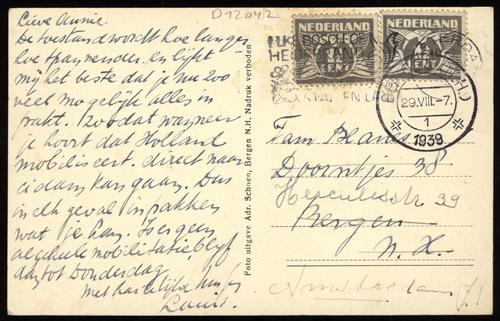 D 12042
Lieve Annie.
De toestand wordt hoe langer
hoe spannender en lijkt
mij het beste dat je nu zoo
veel mogelijk alles in
pakt. Zoodat wanneer
je hoort dat Holland
mobiliseert. direct naar
kan gaan. Dus
in elk geval inpakken
wat je kan. Is er geen
algehele mobilisatie, blijf
dan tot Donderdag.
Met hartelijke
Louis.
Foto uitgave Adr. Schoen, Bergen N.H. Nadruk verboden
NEDERLAND
NEDERLAND
CENT
CENT
29.VIII.-7.
1
1939
Fam Blanes
Doorntjes 38
Herculesstr 39
Bergen
N.H.
Amsterdam